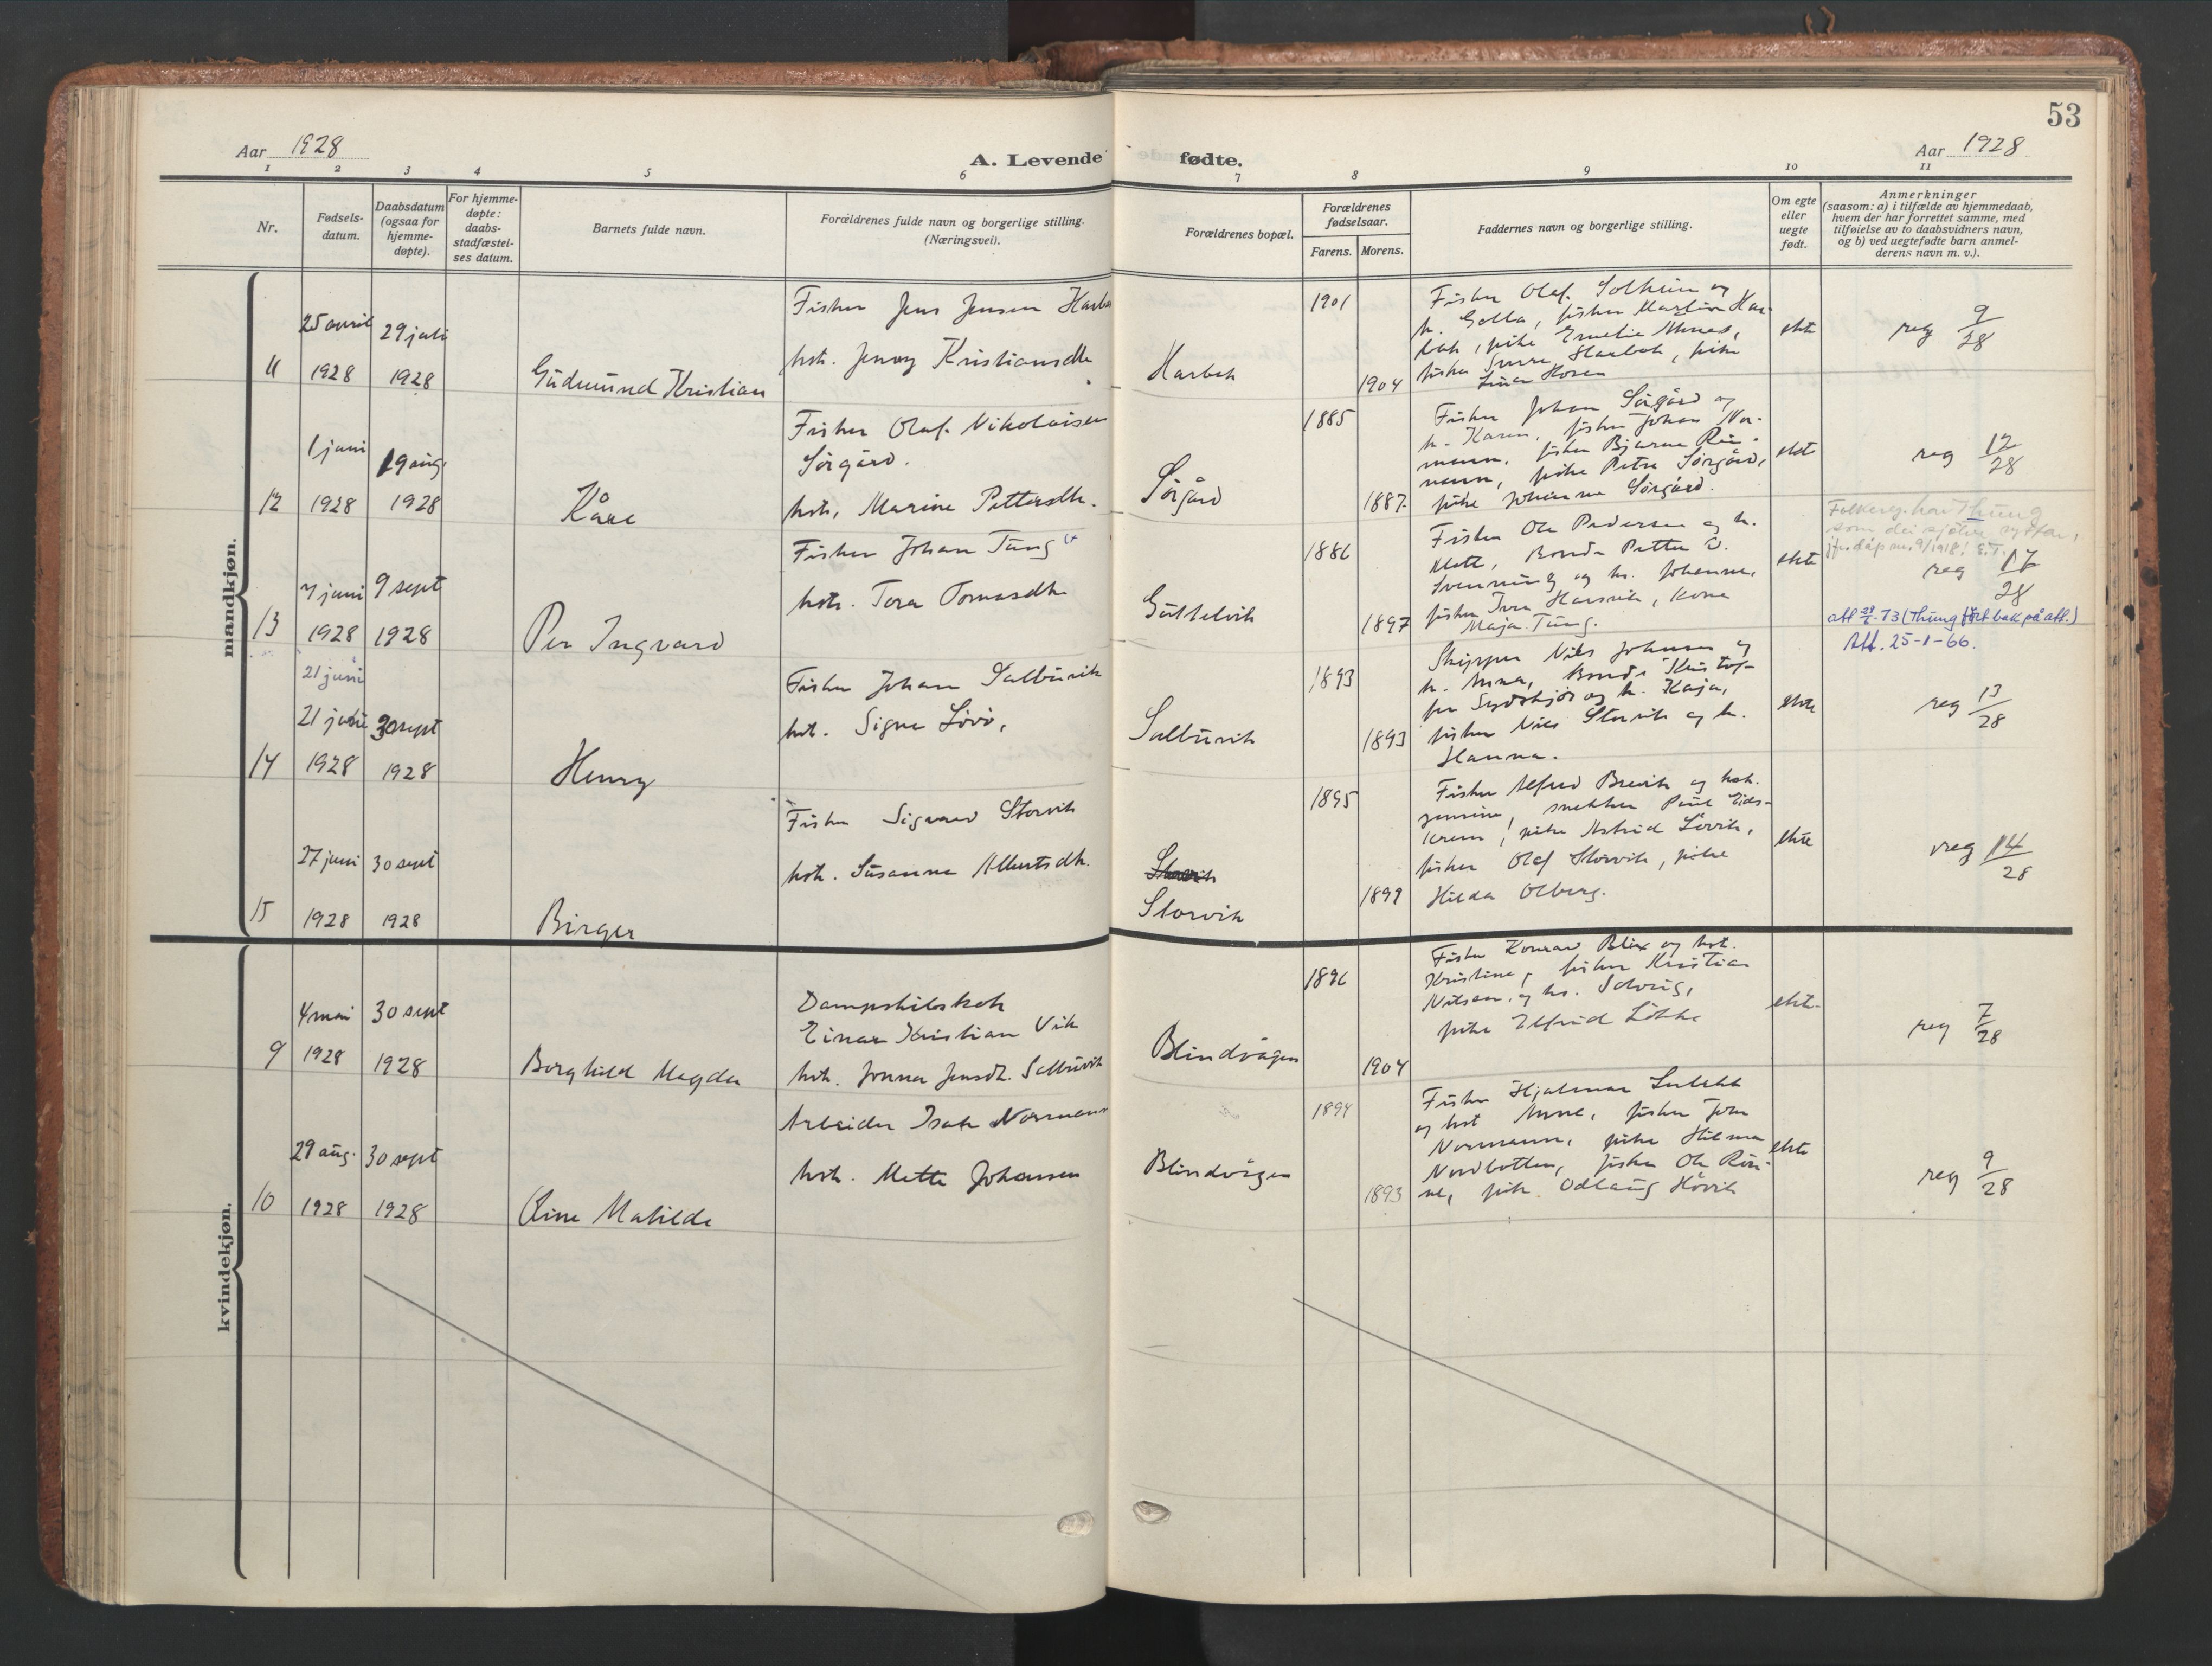 53
Aar 1928
A. Levende fødte.
Aar 1928
1 2 3 4 5 6 7 8 9 10 11
Nr.
Fødsels-
datum.
Daabsdatum
(ogsaa for
hjemme-
døpte).
For hjemme-
døpte:
daabs-
stadfæstel-
ses datum.
Barnets fulde navn.
Forældrenes fulde navn og borgerlige stilling.
(Næringsvei).
Forældrenes bopæl.
Forældrenes
fødselsaar.
Farens. Morens.
Faddernes navn og borgerlige stilling.
Om egte
eller
uegte
født.
Anmerkninger
(saasom: a) i tilfælde av hjemmedaab,
hvem der har forrettet samme, med
tilføielse av to daabsvidners navn,
og b) ved uegtefødte barn anmel-
derens navn m. v.).
mandkjøn.
11
25 april
1928
29 juli
1928
Gudmund Kristian
Fisker Jens Jensen Harba
hst. Jenny Kristiansdtr
Harbak
1901
1904
Fisker Olaf Solheim og
h. Golla, fisker Martin Har-
bak, pike Emelie Mones,
fisker Sverre Harbak, pike
Lina Hosen
ekte
reg 9/28
12
1 juni
1928
19 aug.
1928
Kåre
Fisker Olaf Nikolaisen
Sørgård.
hst. Marine Pettersdtr.
Sørgård
1885
1887.
Fisker Johan Sørgård og
h. Karen, fisker Johan Nor-
mann, fisker Bjarne Rin-
nenn, pike Petra Sørgård,
pike Johanna Sørgård.
ekte
reg 12/28
13
7 juni
1928
9 sept
1928
Per Ingvard
Fisker Johan Tung
hst. Tora Tomasdtr
Guttelvik
1886
1897
Fisker Ole Pedersen og h.
Klett, Bonde Petter O.
Svenning og h. Johanna,
fisker Ivar Harsvik, Kona
Maja Tung.
ekte
Folkereg. har Thung
som dei sjølve nyttar,
jfr. dåp nr. 9/1918! E.T.
reg 17/28
Att. 73 (Thung ført bak på att.)
Att. 25-1-66.
14
21 juni
21 juni
1928
30 sept
1928
Henry
Fisker Johan Salbuvik
hst. Signe Løvø,
Salbuvik
1893
1893
Skipper Nils Johnsen og
h. Anna, Bonde Kristof-
fer Sydskjør og h. Kaja,
fisker Nils Storvik og h.
Hanna.
ekte
reg 13/28
15
27 juni
1928
30 sept
1928
Birger
Fisker Sigvard Storvik
hst. Susanna Albertsdtr.
Storvik
Storvik
1895
1899
Fisker Alfred Brevik og hst.
Jensine, snekker Paul Eids-
krem, pike Astrid Løvik,
fisker Olaf Storvik, pike
Hilda Olberg.
ekte
reg 14/28
kvindekjøn.
9
4 mai
1928
30 sept
1928
Borghild Magda
Dampskibskok
Einar Kristian Vik
hst. Jonna Jensdtr. Salbuvik
Blindvågen
1896
1904
Fisker Konrad Blix og hst.
Kristine, fisker Kristian
Nilsen og h. Solveig,
pike Elfrid Løkke
ekte
reg 7/28
10
29 aug.
1928
30 sept
1928
Line Matilde
Arbeider Isak Normann
hst. Mette Johansen
Blindvågen
1894
1893
Fisker Hjalmar
og hst Anne, fisker Jon
Normann, pike Hilma
Nordbotten, fisker Ole Rin-
ne, pike Odlaug Høvik
ekte
reg 9/28